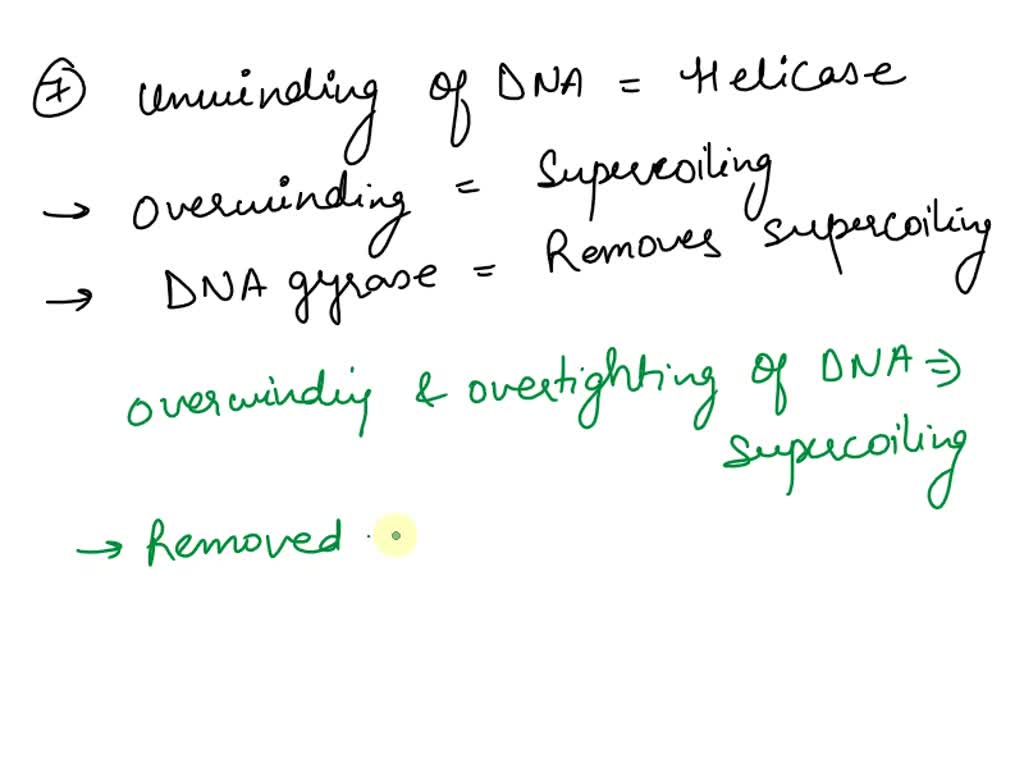 ⊕ Unwinding of DNA = Helicase
→ Overwinding = Supercoiling
→ DNA gyrase = Removes supercoiling
overwindig & overtighting of DNA ⇒
supercoiling
→ Removed